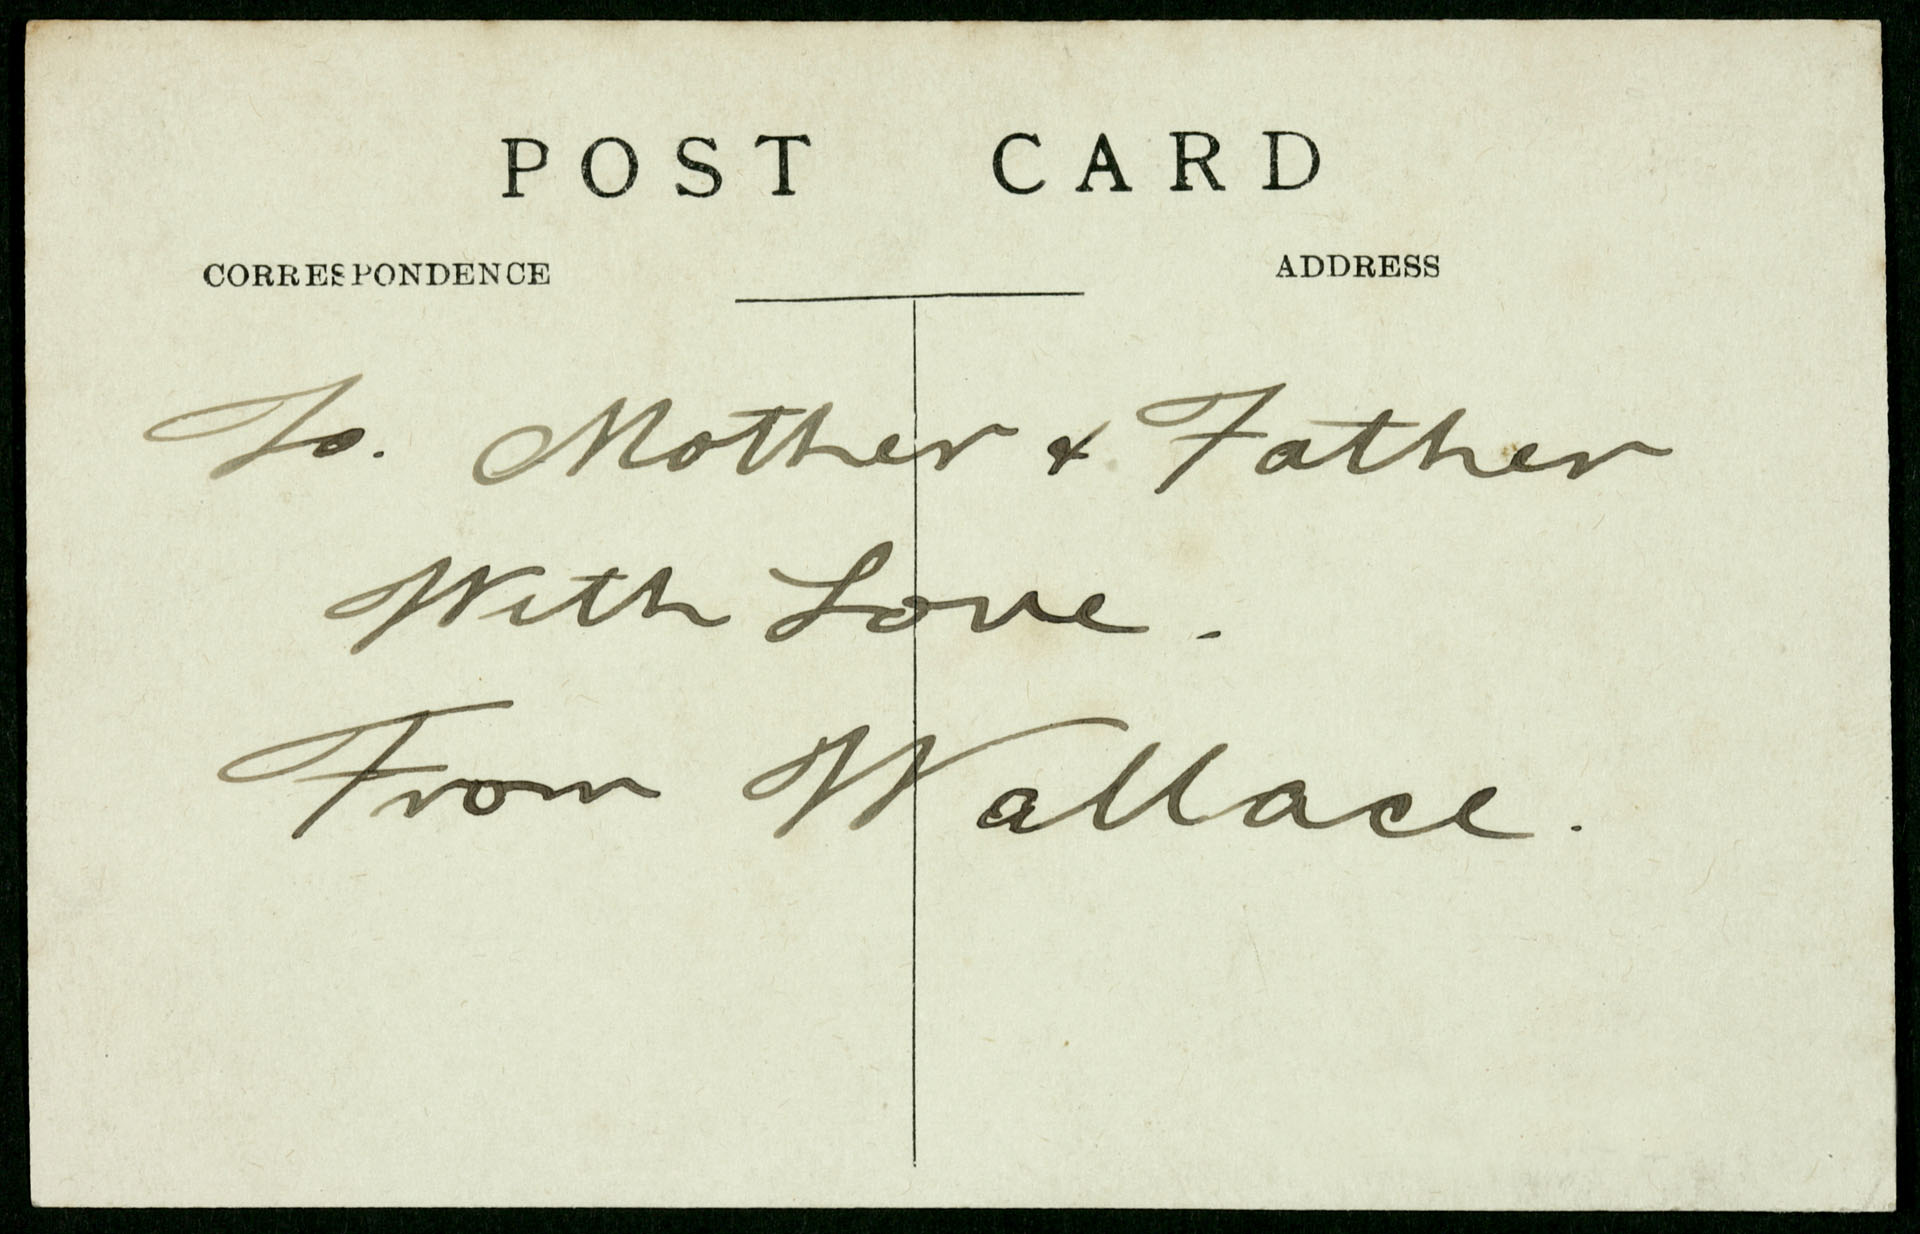 POST CARD
CORRESPONDENCE
ADDRESS
To. Mother & Father
With Love.
From Wallace.